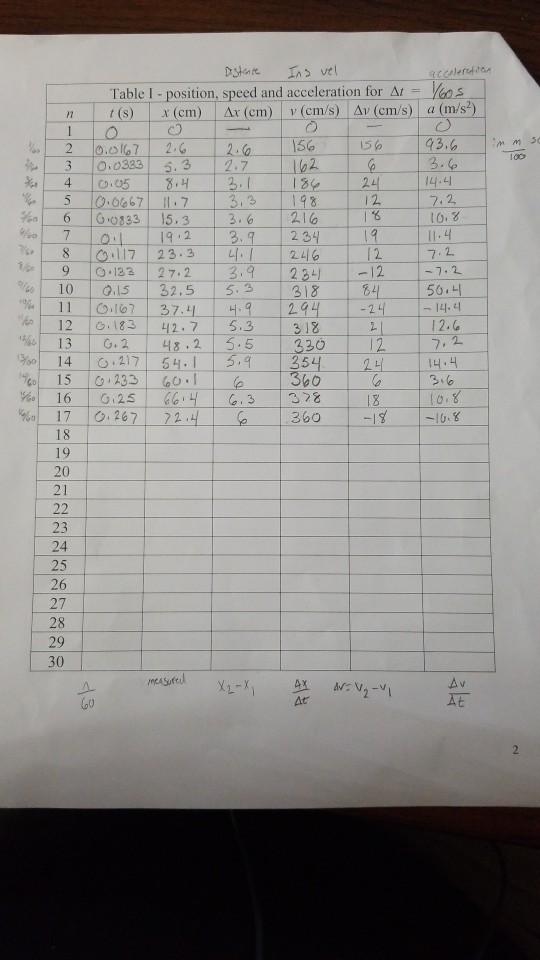 Distance Ins vel acceleration
Table I - position, speed and acceleration for Δt = 1/60 s
n t (s) x (cm) Δx (cm) v (cm/s) Δv (cm/s) a (m/s²)
1 0 0 — 0 — 0
1/60 2 0.0167 2.6 2.6 156 156 93.6 in m
100
2/60 3 0.0333 5.3 2.7 162 6 3.6
3/60 4 0.05 8.4 3.1 186 24 14.4
4/60 5 0.0667 11.7 3.3 198 12 7.2
5/60 6 0.0833 15.3 3.6 216 18 10.8
6/60 7 0.1 19.2 3.9 234 19 11.4
7/60 8 0.117 23.3 4.1 246 12 7.2
8/60 9 0.133 27.2 3.9 234 -12 -7.2
9/60 10 0.15 32.5 5.3 318 84 50.4
10/60 11 0.167 37.4 4.9 294 -24 -14.4
11/60 12 0.183 42.7 5.3 318 21 12.6
12/60 13 0.2 48.2 5.5 330 12 7.2
13/60 14 0.217 54.1 5.9 354 24 14.4
14/60 15 0.233 60.1 6 360 6 3.6
15/60 16 0.25 66.4 6.3 378 18 10.8
16/60 17 0.267 72.4 6 360 -18 -10.8
18
19
20
21
22
23
24
25
26
27
28
29
30
n/60 measured x₂-x₁ Δx/Δt Δv= v₂-v₁ Δv/Δt
2